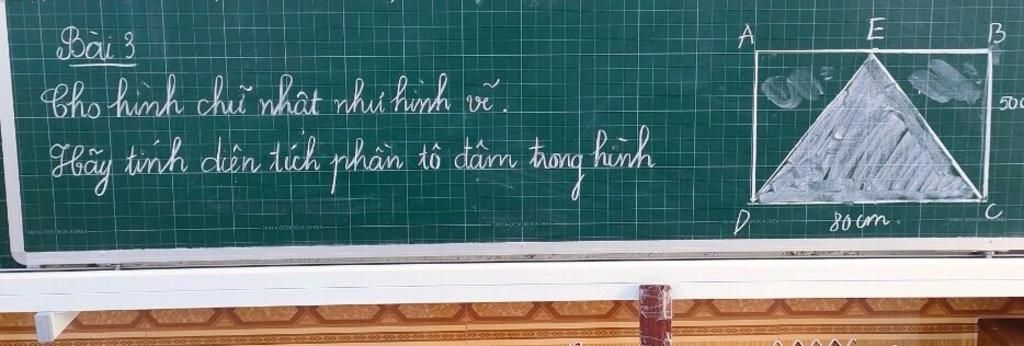 Bài 3
Cho hình chữ nhật như hình vẽ.
Hãy tính diện tích phần tô đậm trong hình
A E B
50c
D 80 cm C